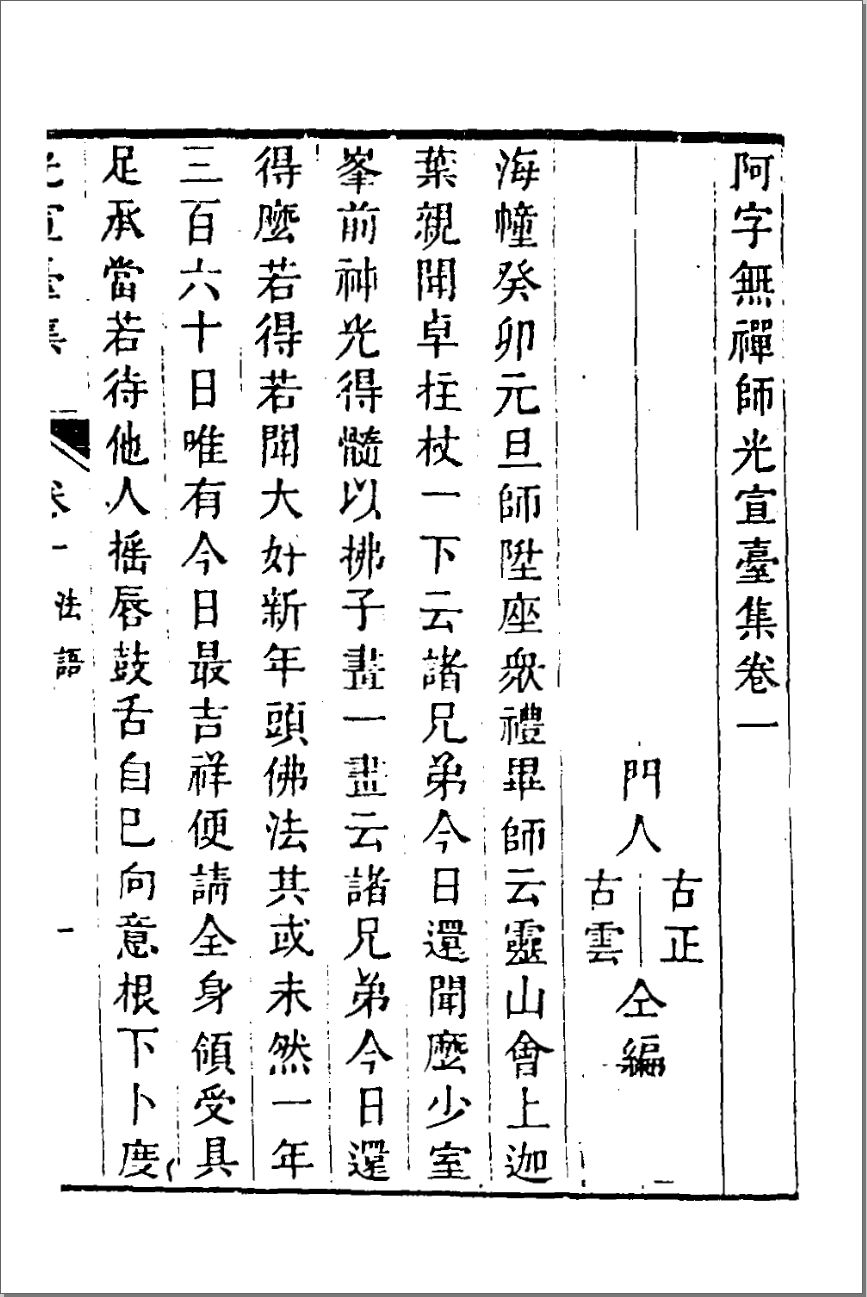 阿字無禪師光宣臺集卷一
門人
古正
古雲
仝編
海幢癸卯元旦師陞座衆禮畢師云靈山會上迦
葉親聞卓柱杖一下云諸兄弟今日還聞麽少室
峯前神光得髓以拂子畫一畫云諸兄弟今日還
得麽若得若聞大好新年頭佛法其或未然一年
三百六十日唯有今日最吉祥便請全身領受具
足承當若待他人搖唇鼓舌自巳向意根下卜度
光宣臺集
卷一
法語
一